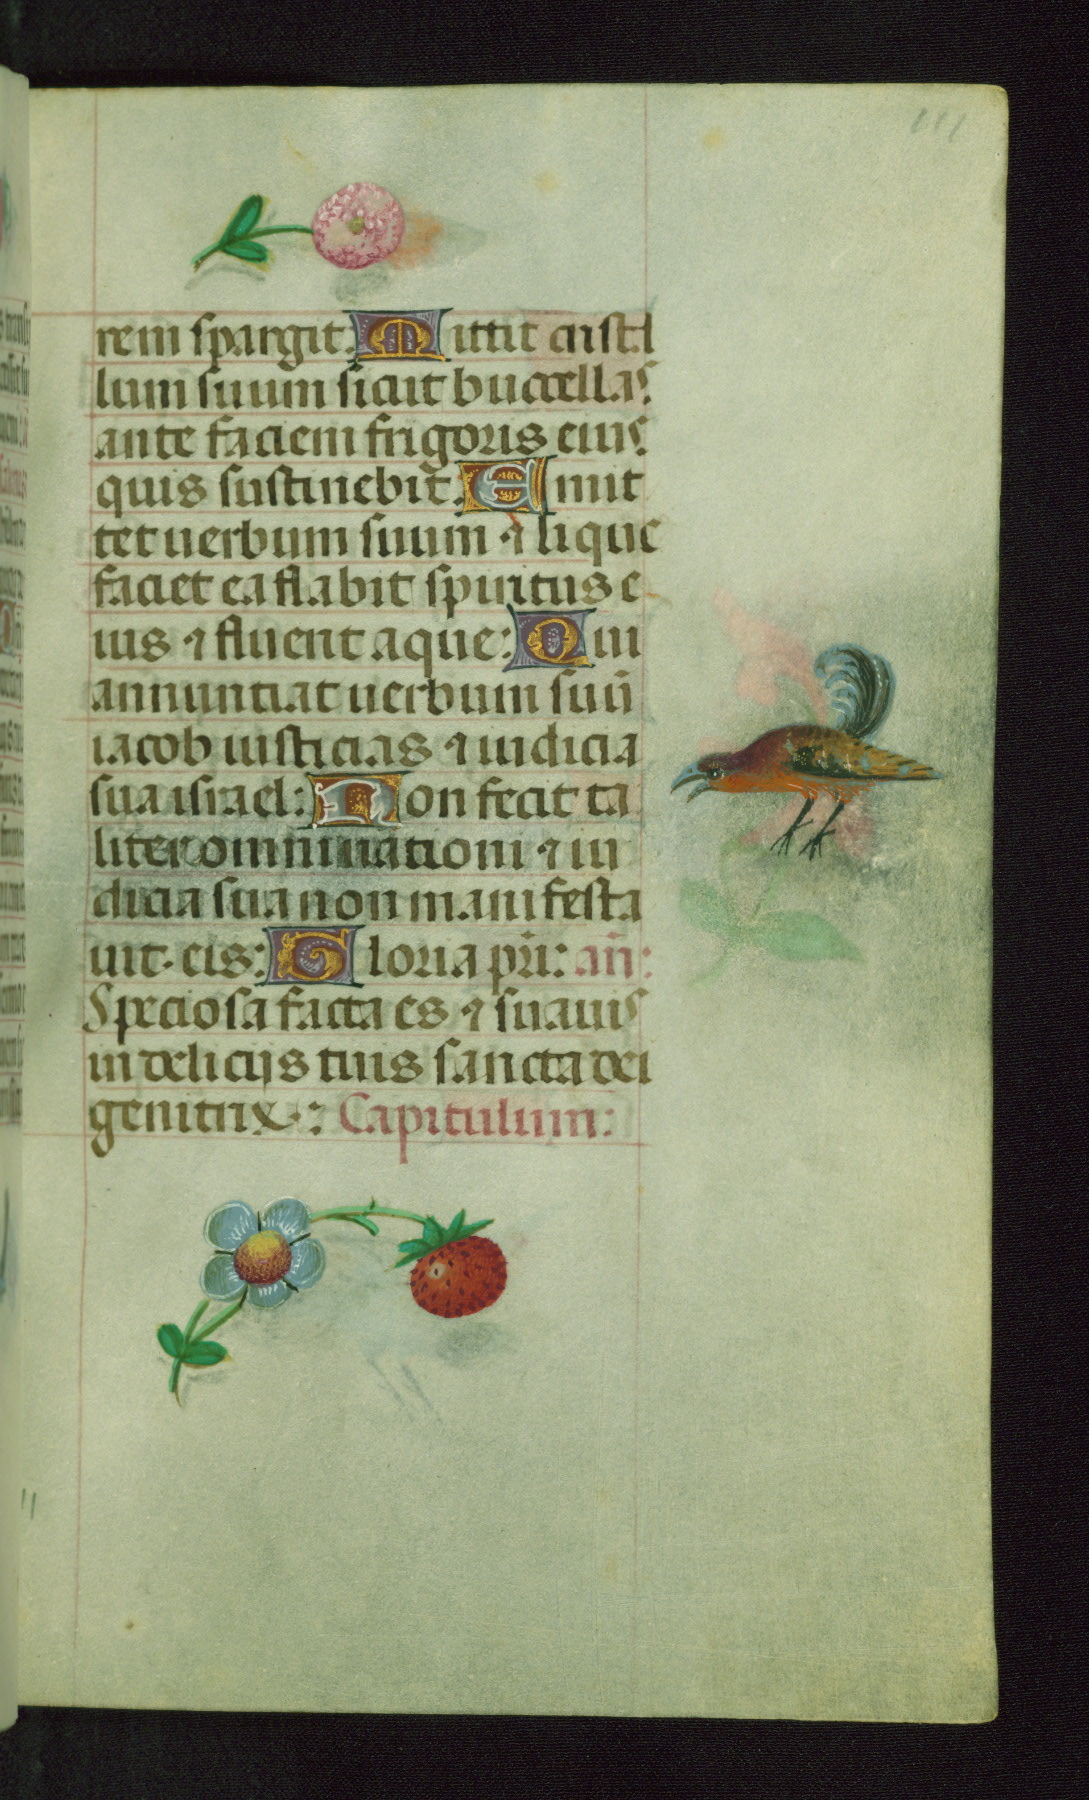 111
rem spargit. Mittit cristal
lum suum sicut buccellas
ante faciem frigoris eius
quis sustinebit. Emit
tet uerbum suum ⁊ lique
faciet ea flabit spiritus e
ius ⁊ fluent aque: Qui
annuntiat uerbum suū
iacob iusticias ⁊ iudicia
sua israel: Non fecit ta
liter omni nationi ⁊ iu
dicia sua non manifesta
uit eis: Gloria pr̄i: an̄:
Speciosa facta es ⁊ suauis
in delicijs tuis sancta dei
genitrix: Capitulum: